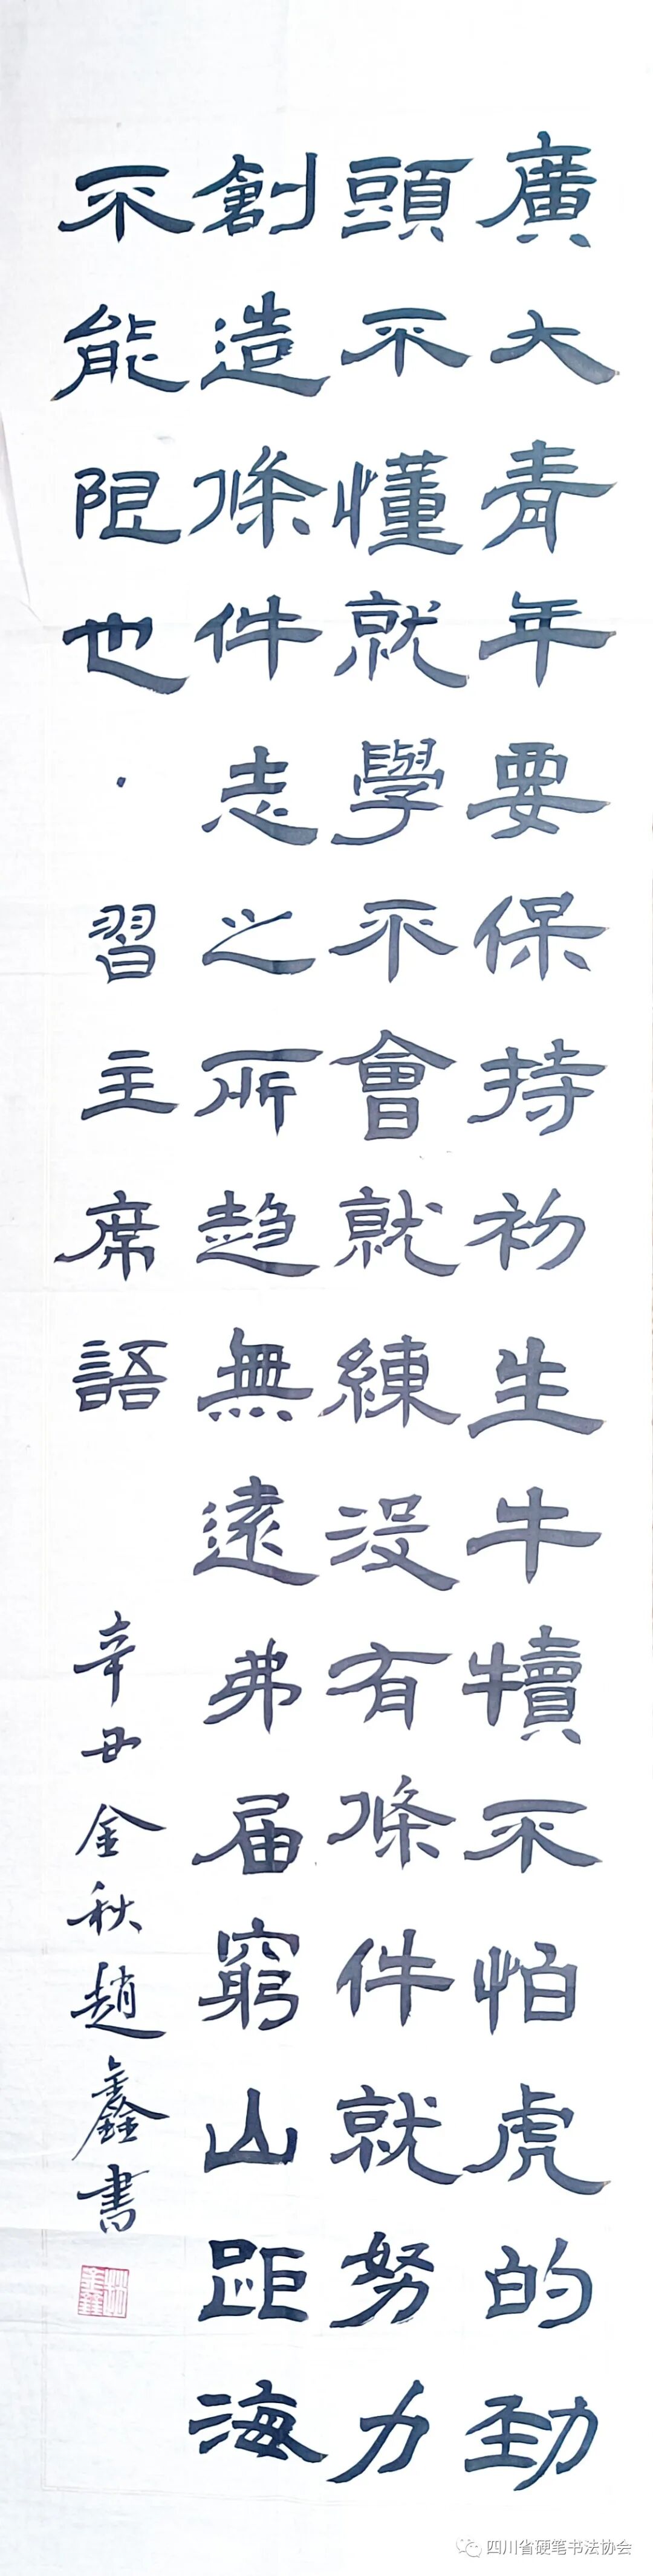 廣大青年要保持初生牛犢不怕虎的勁
頭不懂就學不會就練没有條件就努力
創造條件志之所趋無遠弗届窮山距海
不能限也·習主席語
辛丑金秋趙鑫書
四川省硬笔书法协会